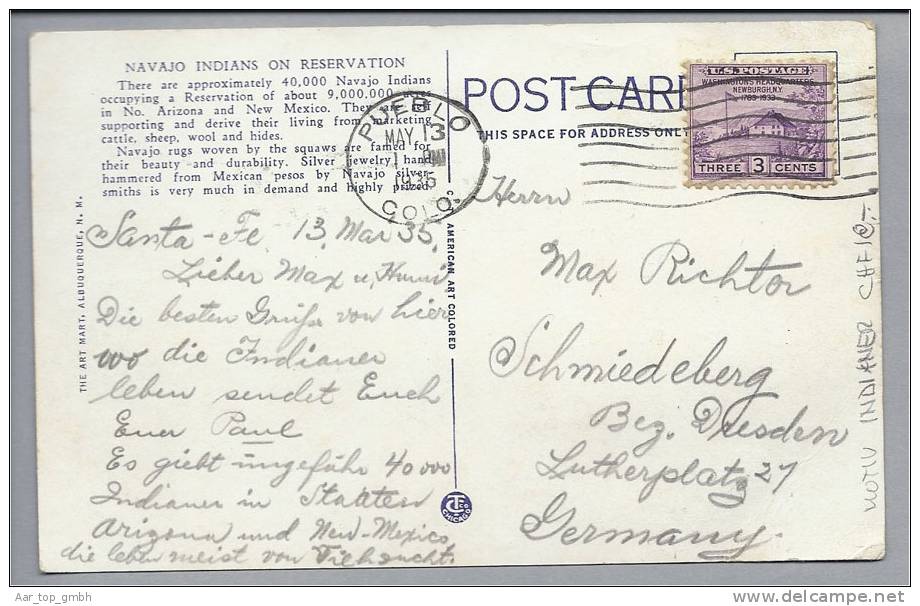 NAVAJO INDIANS ON RESERVATION
There are approximately 40,000 Navajo Indians
occupying a Reservation of about 9,000,000 acres
in No. Arizona and New Mexico. They are self
supporting and derive their living from marketing
cattle, sheep, wool and hides.
Navajo rugs woven by the squaws are famed for
their beauty and durability. Silver jewelry hand
hammered from Mexican pesos by Navajo silver-
smiths is very much in demand and highly prized
POST CARD
THIS SPACE FOR ADDRESS ONLY
U.S. POSTAGE
WASHINGTON'S HEADQUARTERS
NEWBURGH, N.Y.
1783-1933
THREE 3 CENTS
PUEBLO
MAY 13
1935
COLO.
Santa-Fe 13. Mai 35.
Lieber Max u.
Die besten Grüße von hier
wo die Indianer
leben sendet Euch
Euer Paul
Es giebt ungefähr 40000
Indianer in Staaten
Arizona und New-Mexico
die leben meist von Viehzucht.
Herrn
Max Richter
Schmiedeberg
Bez. Dresden
Lutherplatz 27
Germany.
THE ART MART, ALBUQUERQUE, N. M.
AMERICAN ART COLORED
CHICAGO
MOTIV INDIANER CHF10,-
Aar_top_gmbh
delcampe.net